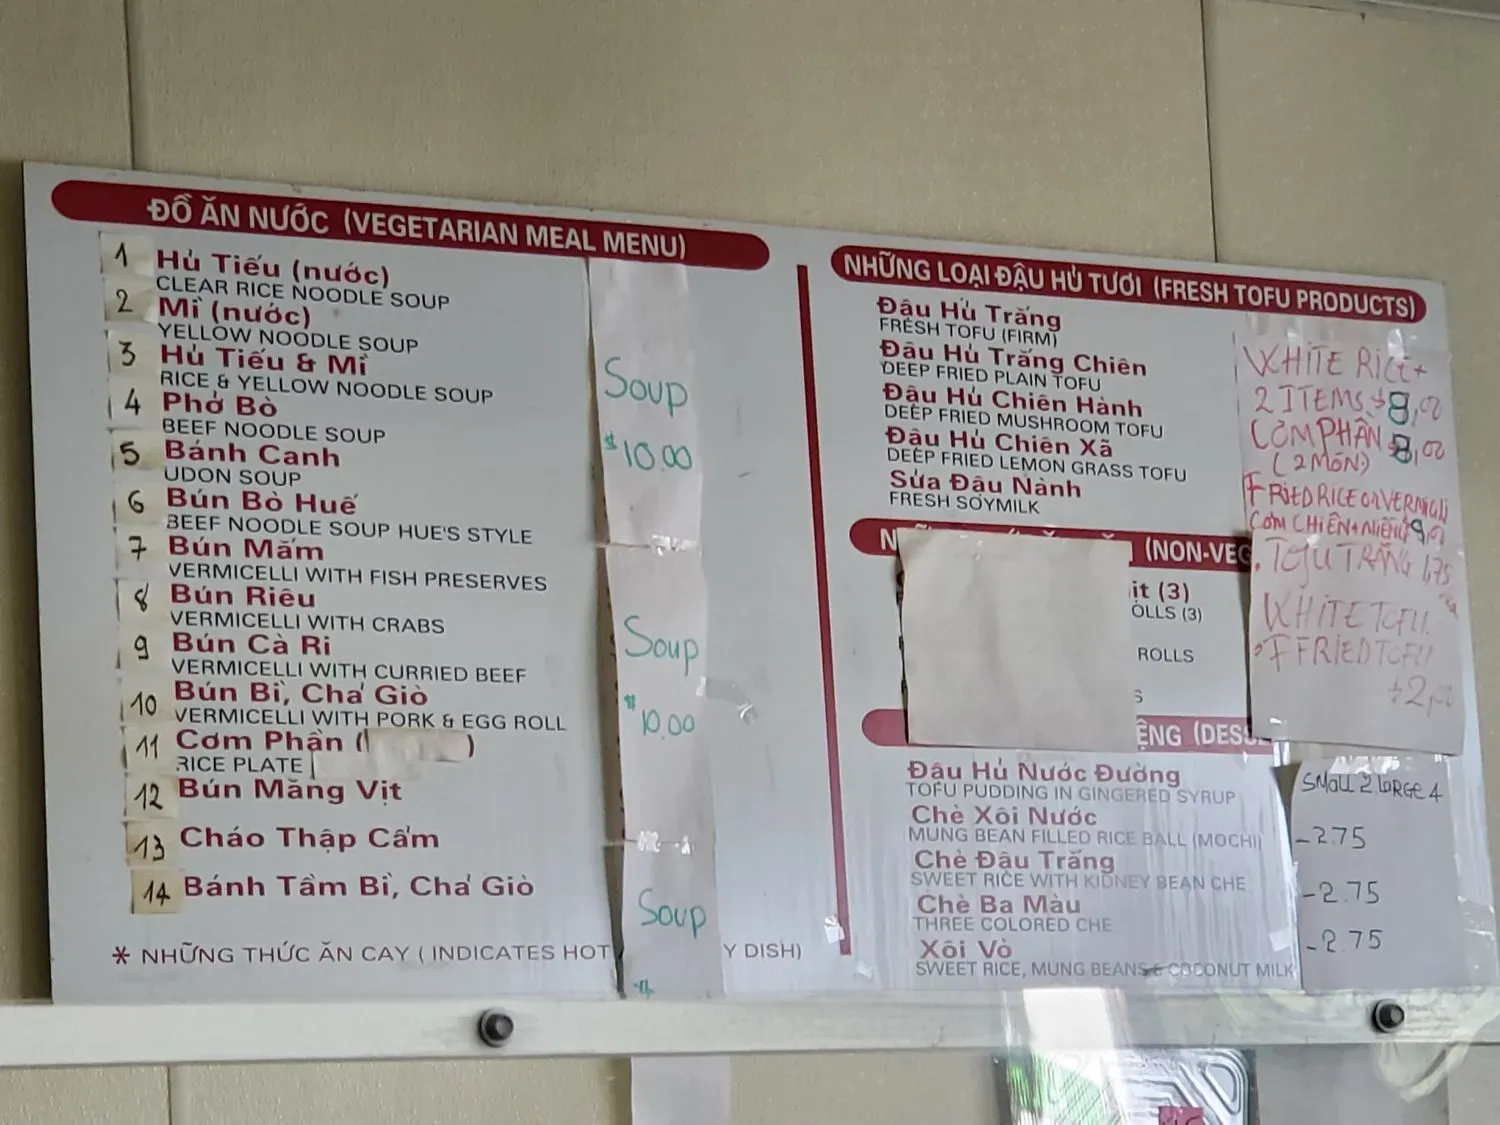 ĐỒ ĂN NƯỚC (VEGETARIAN MEAL MENU)
1 Hủ Tiếu (nước)
CLEAR RICE NOODLE SOUP
2 Mì (nước)
YELLOW NOODLE SOUP
3 Hủ Tiếu & Mì
RICE & YELLOW NOODLE SOUP
4 Phở Bò
BEEF NOODLE SOUP
5 Bánh Canh
UDON SOUP
6 Bún Bò Huế
BEEF NOODLE SOUP HUE'S STYLE
7 Bún Mắm
VERMICELLI WITH FISH PRESERVES
8 Bún Riêu
VERMICELLI WITH CRABS
9 Bún Cà Ri
VERMICELLI WITH CURRIED BEEF
10 Bún Bì, Chả Giò
VERMICELLI WITH PORK & EGG ROLL
11 Cơm Phần ( )
RICE PLATE
12 Bún Măng Vịt
13 Cháo Thập Cẩm
14 Bánh Tầm Bì, Chả Giò
* NHỮNG THỨC ĂN CAY ( INDICATES HOT Y DISH)
Soup
$10.00
Soup
$10.00
Soup
NHỮNG LOẠI ĐẬU HỦ TƯƠI (FRESH TOFU PRODUCTS)
Đậu Hủ Trắng
FRESH TOFU (FIRM)
Đậu Hủ Trắng Chiên
DEEP FRIED PLAIN TOFU
Đậu Hủ Chiên Hành
DEEP FRIED MUSHROOM TOFU
Đậu Hủ Chiên Xã
DEEP FRIED LEMON GRASS TOFU
Sửa Đậu Nành
FRESH SOYMILK
WHITE RICE +
2 ITEMS $8,00
CƠM PHẦN $8,00
(2 MÓN)
FRIED RICE OR
CƠM CHIÊN
TOFU TRẮNG 1,75
WHITE TOFU
FRIED TOFU
(NON-VEG
it (3)
OLLS (3)
ROLLS
S
ÊNG (DESS
Đậu Hủ Nước Đường
TOFU PUDDING IN GINGERED SYRUP
SMALL 2 LARGE 4
Chè Xôi Nước
MUNG BEAN FILLED RICE BALL (MOCHI)
-2.75
Chè Đậu Trắng
SWEET RICE WITH KIDNEY BEAN CHE
-2.75
Chè Ba Màu
THREE COLORED CHE
-2.75
Xôi Vò
SWEET RICE, MUNG BEANS & COCONUT MILK